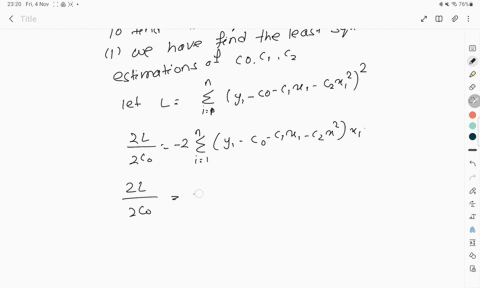 23:20 Fri, 4 Nov
76%
Title
(1) we have find the least
estimations of c0, c1, c2
let L = n ∑ i=1 (y1 - c0 - c1x1 - c2x1²)²
2L / 2c0 = -2 n ∑ i=1 (y1 - c0 - c1x1 - c2x²) x1
2L / 2c0 =